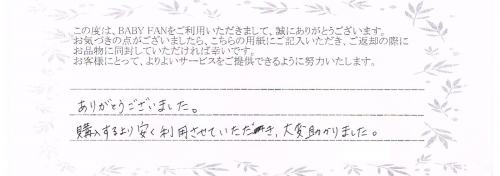 この度は、BABY FANをご利用いただきまして、誠にありがとうございます。
お気づきの点がございましたら、こちらの用紙にご記入いただき、ご返却の際に
お品物に同封していただければ幸いです。
お客様にとって、よりよいサービスをご提供できるように努力いたします。
ありがとうございました。
購入するより安く利用させていただき、大変助かりました。